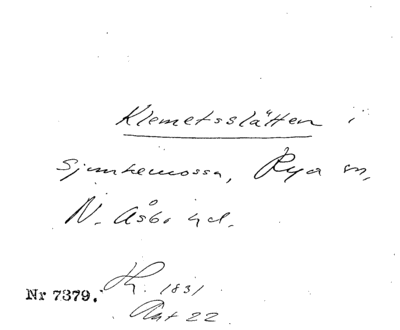 Klemetsslätten i
Sjunkemossa, Rya sn,
N. Åsbo hd.
Nr 7379. 1831
Akt 22